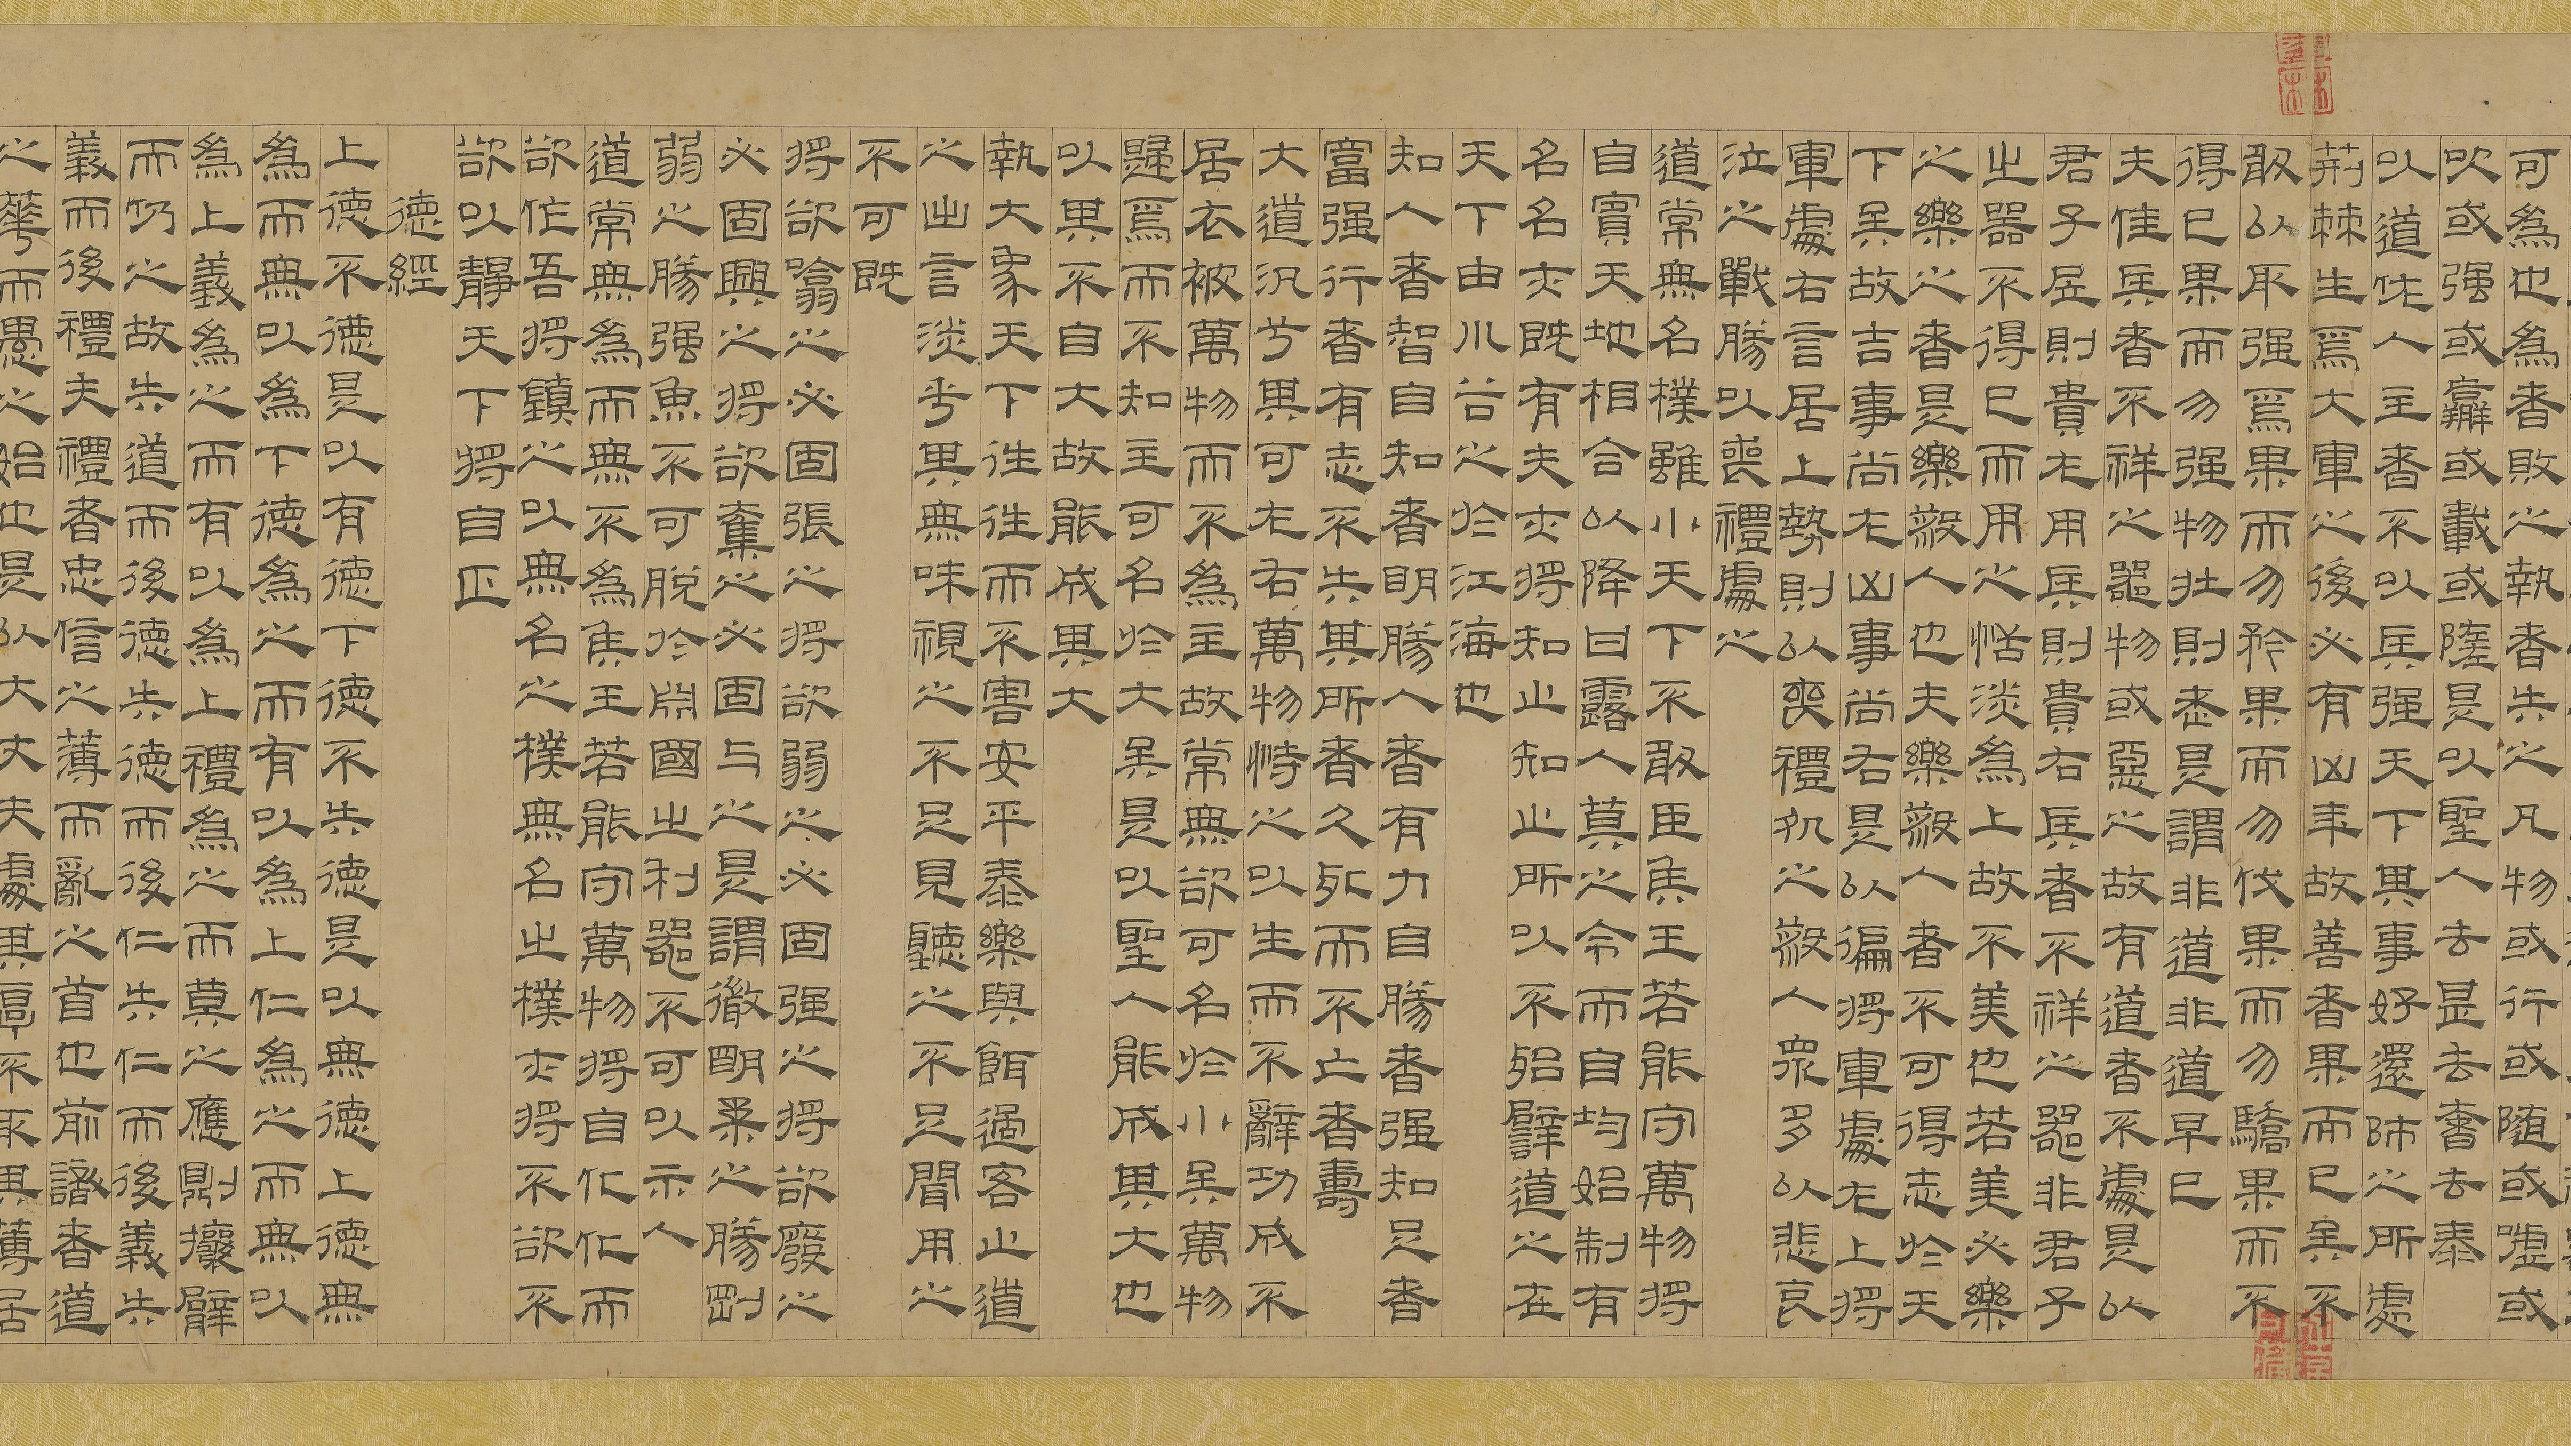 可為也為者敗之執者失之凡物或行或隨或噓或
吹或强或羸或載或隳是以聖人去甚去奢去泰
以道佐人主者不以兵强天下其事好還師之所處
荊棘生焉大軍之後必有凶年故善者果而已矣不
敢以取强焉果而勿矜果而勿伐果而勿驕果而不
得已果而勿强物壯則老是謂非道非道早已
夫佳兵者不祥之器物或惡之故有道者不處是以
君子居則貴左用兵則貴右兵者不祥之器非君子
之器不得已而用之恬淡為上故不美也若美必樂
之樂之者是樂殺人也夫樂殺人者不可得志於天
下矣故吉事尚左凶事尚右是以偏將軍處左上將
軍處右言居上勢則以喪禮処之殺人眾多以悲哀
泣之戰勝以喪禮處之
道常無名樸雖小天下不敢臣侯王若能守萬物將
自賓天地相合以降甘露人莫之令而自均始制有
名名亦既有夫亦將知止知止所以不殆譬道之在
天下由川谷之於江海也
知人者智自知者明勝人者有力自勝者强知足者
富强行者有志不失其所者久死而不亡者壽
大道汎兮其可左右萬物恃之以生而不辭功成不
居衣被萬物而不為主故常無欲可名於小矣萬物
歸焉而不知主可名於大矣是以聖人能成其大也
以其不自大故能成其大
執大象天下往往而不害安平泰樂與餌過客止道
之出言淡兮其無味視之不足見聽之不足聞用之
不可既
將欲噏之必固張之將欲弱之必固强之將欲廢之
必固興之將欲奪之必固与之是謂微明柔之勝剛
弱之勝强魚不可脫於淵國之利器不可以示人
道常無為而無不為侯王若能守萬物將自化化而
欲作吾將鎮之以無名之樸無名之樸亦將不欲不
欲以靜天下將自正
德經
上德不德是以有德下德不失德是以無德上德無
為而無以為下德為之而有以為上仁為之而無以
為上義為之而有以為上禮為之而莫之應則攘臂
而仍之故失道而後德失德而後仁失仁而後義失
義而後禮夫禮者忠信之薄而亂之首也前識者道
之華而愚之始也是以大丈夫處其厚不取其薄居